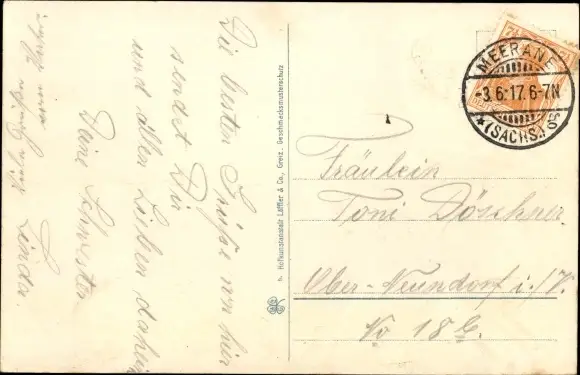 Die besten Grüße von hier
sendet Dir
und allen Lieben daheim
Deine Schwester
Linda.
Viele Grüßen
von Herrn
Hofkunstanstalt Löffler & Co., Greiz. Geschmacksmusterschutz
MEERANE
-3.6.17.6-7N
*(SACHS.)
Fräulein
Toni Döschner
Ober-Neundorf i./V.
No 18 E.